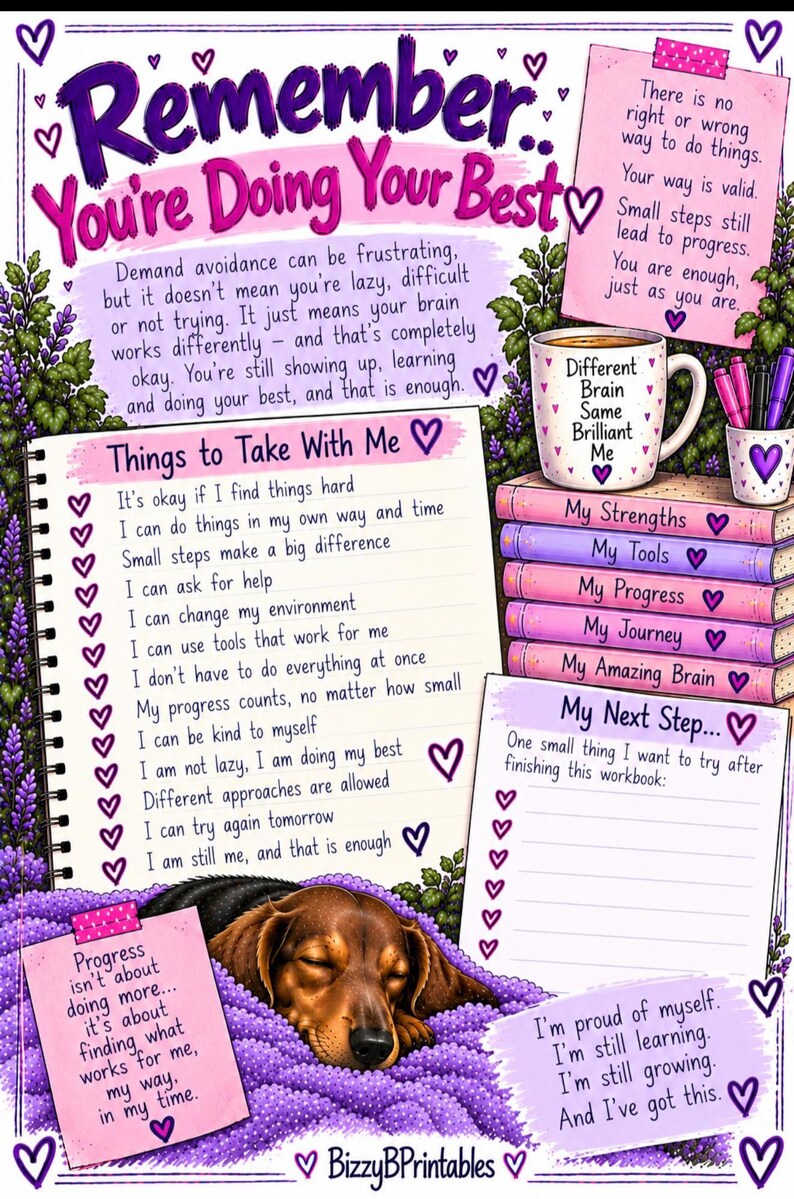 Remember..
You're Doing Your Best
There is no
right or wrong
way to do things.
Your way is valid.
Small steps still
lead to progress.
You are enough,
just as you are.
Demand avoidance can be frustrating,
but it doesn't mean you're lazy, difficult
or not trying. It just means your brain
works differently – and that's completely
okay. You're still showing up, learning
and doing your best, and that is enough.
Different
Brain
Same
Brilliant
Me
Things to Take With Me
It's okay if I find things hard
I can do things in my own way and time
Small steps make a big difference
I can ask for help
I can change my environment
I can use tools that work for me
I don't have to do everything at once
My progress counts, no matter how small
I can be kind to myself
I am not lazy, I am doing my best
Different approaches are allowed
I can try again tomorrow
I am still me, and that is enough
My Strengths
My Tools
My Progress
My Journey
My Amazing Brain
My Next Step...
One small thing I want to try after
finishing this workbook:
Progress
isn't about
doing more...
it's about
finding what
works for me,
my way,
in my time.
I'm proud of myself.
I'm still learning.
I'm still growing.
And I've got this.
BizzyBPrintables